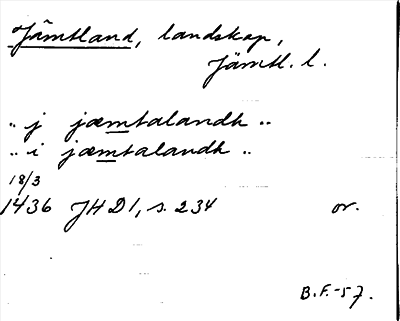 Jämtland, landskap,
Jämtl. l.
.. j jæmtalandh ..
.. i jæmtalandh ..
18/3
1436 JHD1, s. 234 or.
B.F.-57.